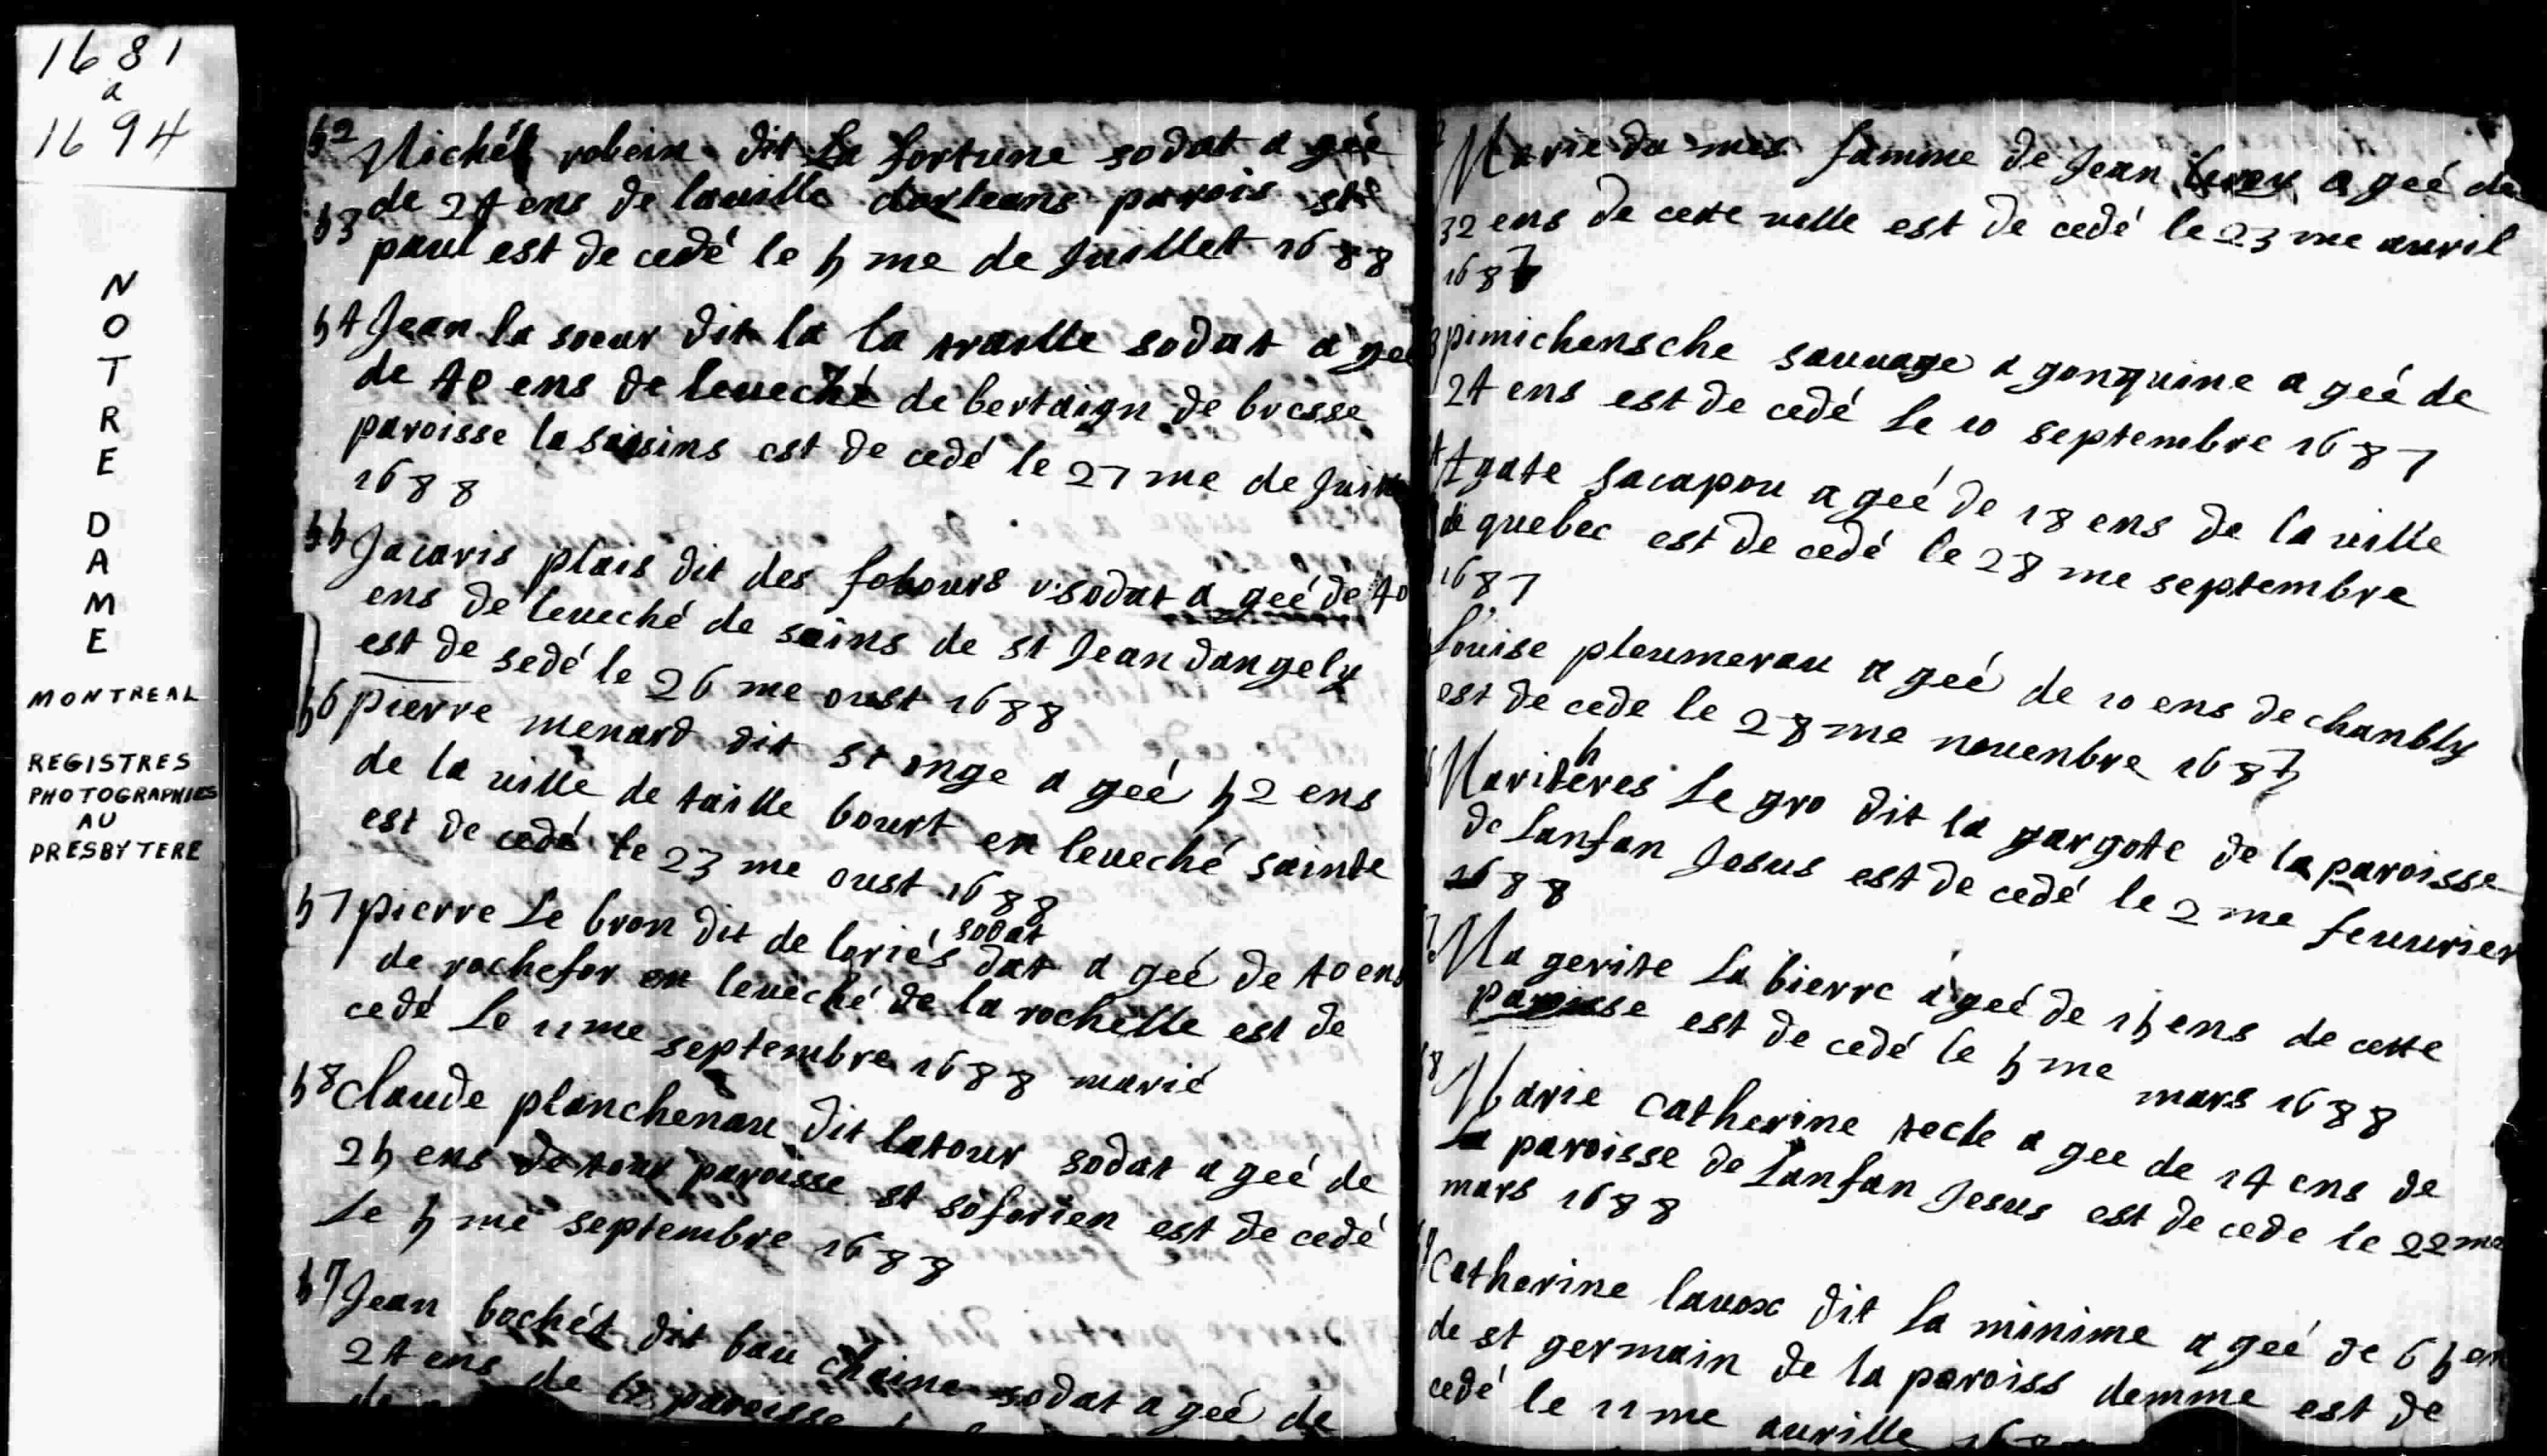 1681
a
1694
NOTRE
DAME
MONTREAL
REGISTRES
PHOTOGRAPHIES
AU
PRESBYTERE
52 Michél robein dit La fortune sodat a geé
de 24 ens de lauille dorleans parois st
53 paul est de cedé le 5 me de Juillet 1688
54 Jean la soeur dit la la traille sodat a geé
de 40 ens de leueché de bertaign de bresse
paroisse la saisins est de cedé le 27 me de
1688
55 Jacaris plais dit des fobours sodat a geé de 40
ens de leueché de sains de st Jean dangely
est de sedé le 26 me oust 1688
56 pierre menard dit st onge a geé 52 ens
de la uille de taille bourt en leueché sainte
est de cedé le 23 me oust 1688
57 pierre Le bron dit de loriés dat a geé de 40 ens
sodat
de rochefor en leueché de la rochelle est de
cedé Le 11 me septembre 1688 marié
58 Claude planchenau dit latour sodat a geé de
25 ens de tour paroisse st soforien est de cedé
Le 5 me septembre 1688
57 Jean bochét dit bau chaine sodat a geé de
24 ens de la paroisse
Marie du mes famme de Jean a geé de
32 ens de cette uelle est de cedé le 23 me auril
1687
pimichensche sauuage a gonquine a geé de
24 ens est de cedé Le 10 septembre 1687
Agate sacapou a geé de 18 ens de la uille
de quebec est de cedé le 28 me septembre
1687
Louise pleumerau a geé de 10 ens de chanbly
est de cede le 28 me nouenbre 1687
Maritheres Le gro dit la gargote de la paroisse
de Lanfan Jesus est de cedé le 2 me feuurier
1688
Ma gerite La bierre a geé de 15 ens de cette
paroisse est de cedé le 5 me mars 1688
8 Marie Catherine tecle a gee de 14 ens de
La paroisse de Lanfan Jesus est de cede le 22 me
mars 1688
Catherine lauox dit La minime a geé de 65 en
de st germain de la paroiss demme est de
cedé le 11 me aurille